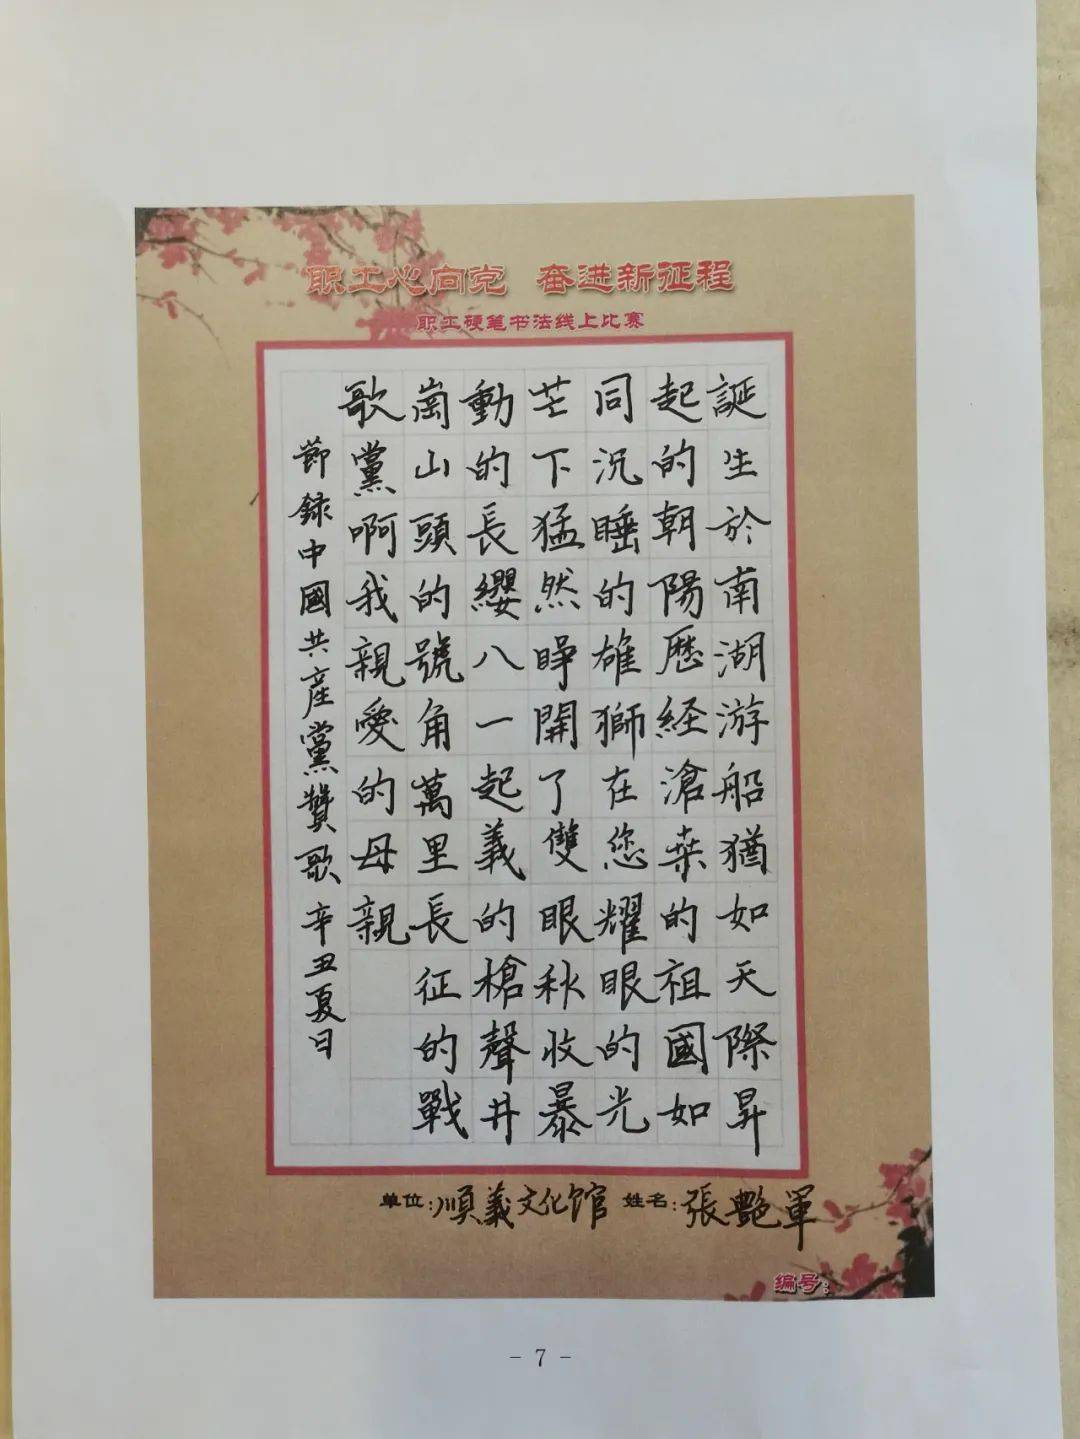 职工心向党 奋进新征程
职工硬笔书法线上比赛
誕生於南湖游船猶如天際昇
起的朝陽歷経滄桑的祖國如
同沉睡的雄獅在您耀眼的光
芒下猛然睜開了雙眼秋收暴
動的長纓八一起義的槍聲井
崗山頭的號角萬里長征的戰
歌黨啊我親愛的母親
節録中國共産黨贊歌辛丑夏日
单位:順義文化馆 姓名:張艷軍
编号:
- 7 -